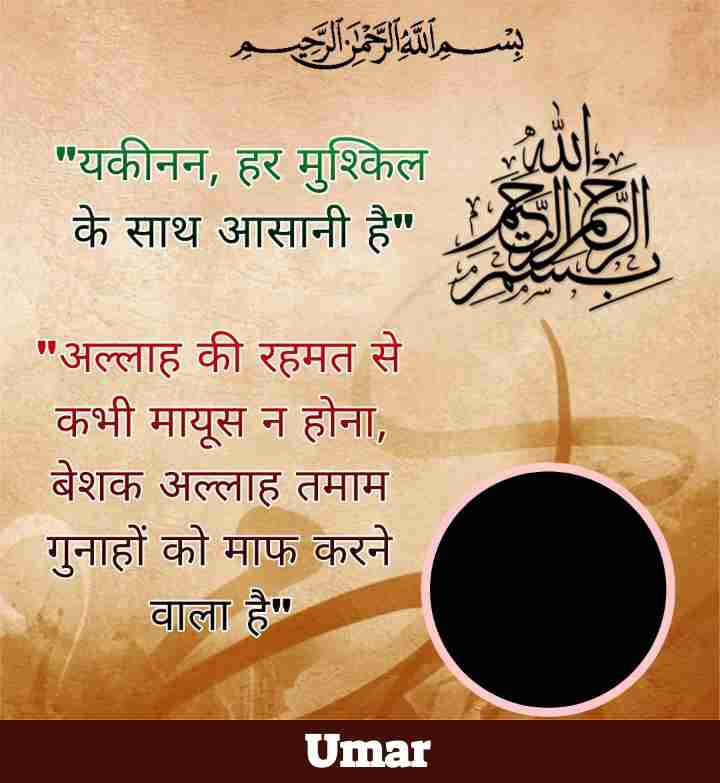 بِسْمِ اللَّهِ الرَّحْمَٰنِ الرَّحِيمِ
"यकीनन, हर मुश्किल
के साथ आसानी है"
بسم الله الرحمن الرحيم
"अल्लाह की रहमत से
कभी मायूस न होना,
बेशक अल्लाह तमाम
गुनाहों को माफ करने
वाला है"
Umar